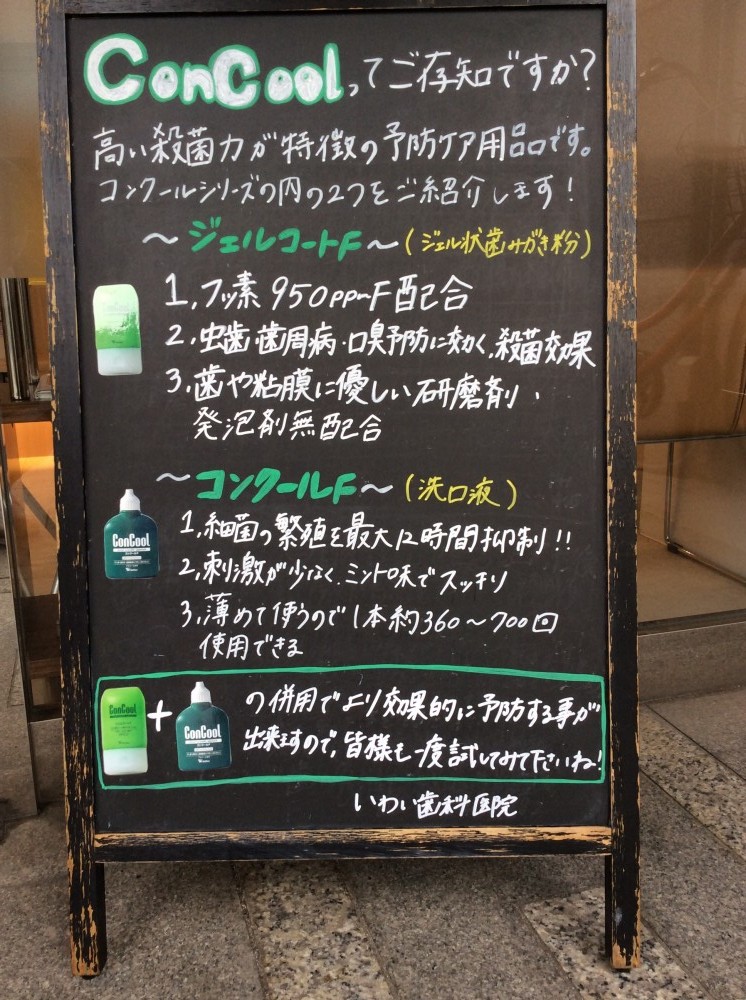 ConCoolってご存知ですか?
高い殺菌力が特徴の予防ケア用品です。
コンクールシリーズの内の2つをご紹介します!
～ジェルコートF～(ジェル状歯みがき粉)
1,フッ素950ppmF配合
2.虫歯,歯周病・口臭予防に効く,殺菌効果
3.歯や粘膜に優しい研磨剤・
発泡剤無配合
～コンクールF～(洗口液)
1,細菌の繁殖を最大12時間抑制!!
2,刺激が少なく,ミント味でスッキリ
3,薄めて使うので1本約360～700回
使用できる
ConCool
ConCool + ConCool の併用でより効果的に予防する事が
出来ますので,皆様も一度試してみて下さいね!
いわい歯科医院